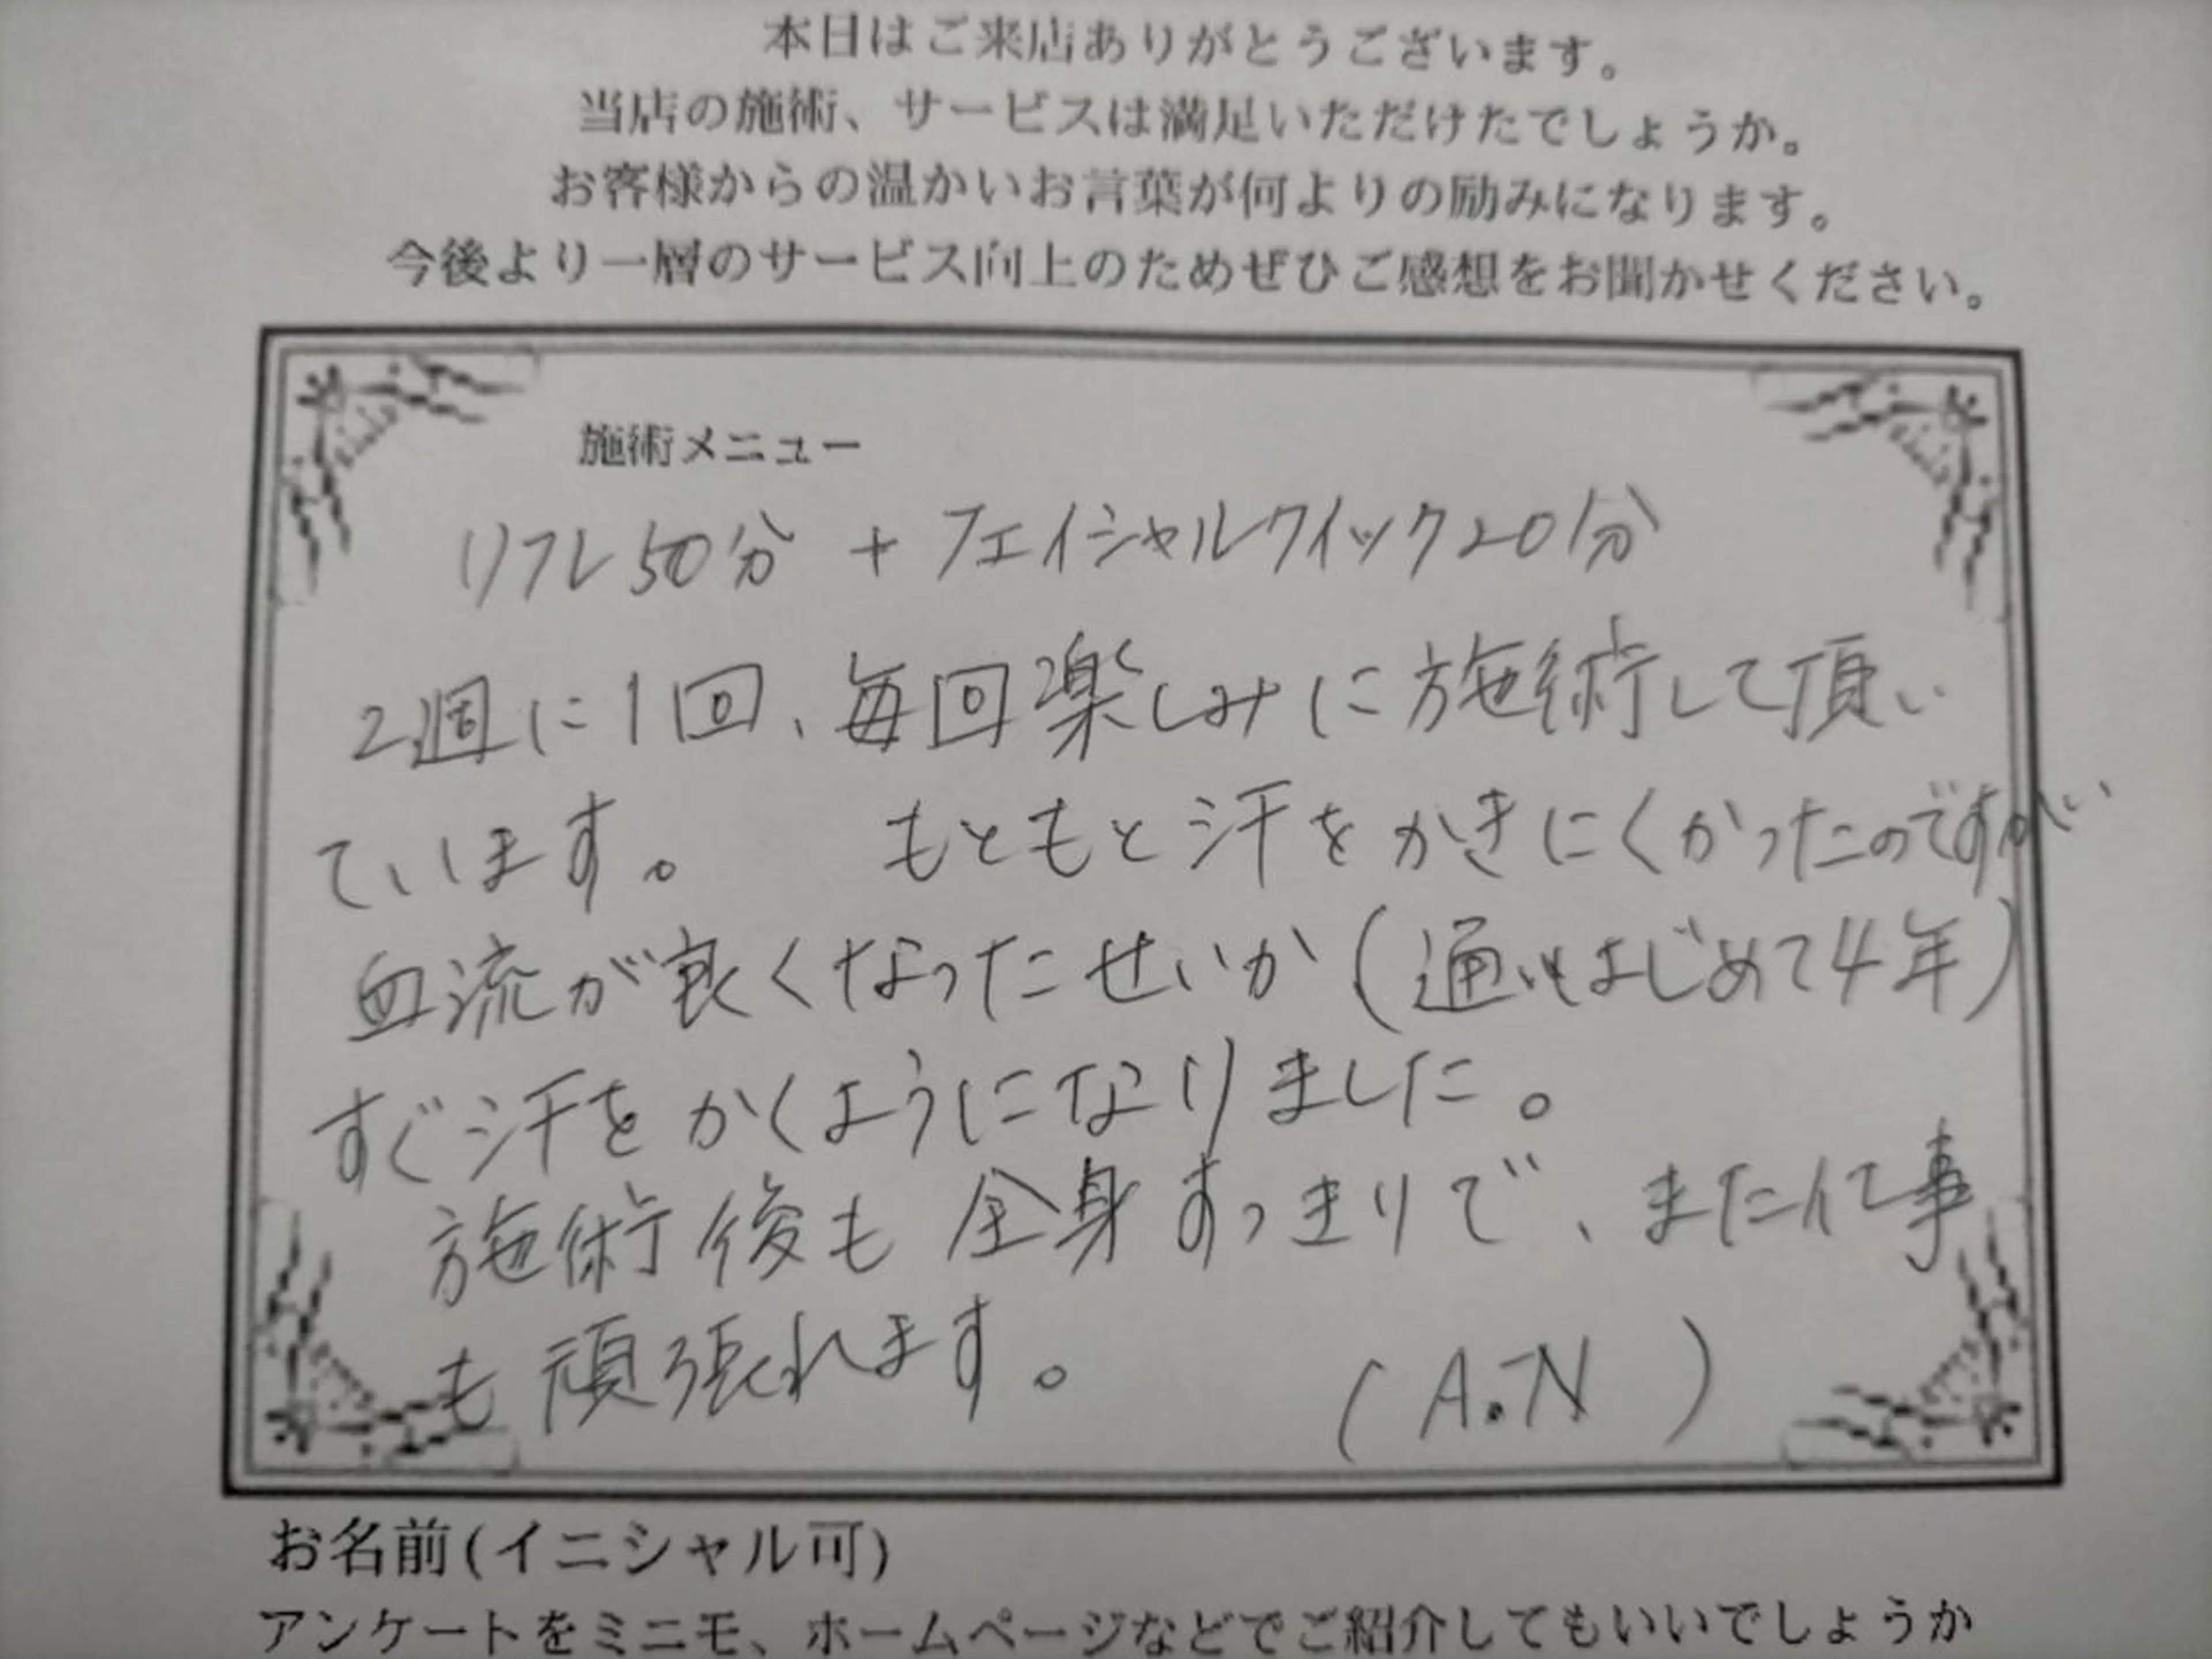 本日はご来店ありがとうございます。
当店の施術、サービスは満足いただけたでしょうか。
お客様からの温かいお言葉が何よりの励みになります。
今後より一層のサービス向上のためぜひご感想をお聞かせください。
施術メニュー
リフレ50分 + フェイシャルクイック20分
2週に1回、毎回楽しみに施術して頂い
ています。 もともと汗をかきにくかったのですが
血流が良くなったせいか(通いはじめて4年)
すぐ汗をかくようになりました。
施術後も全身すっきりで、また仕事
も頑張れます。 (A.N)
お名前(イニシャル可)
アンケートをミニモ、ホームページなどでご紹介してもいいでしょうか